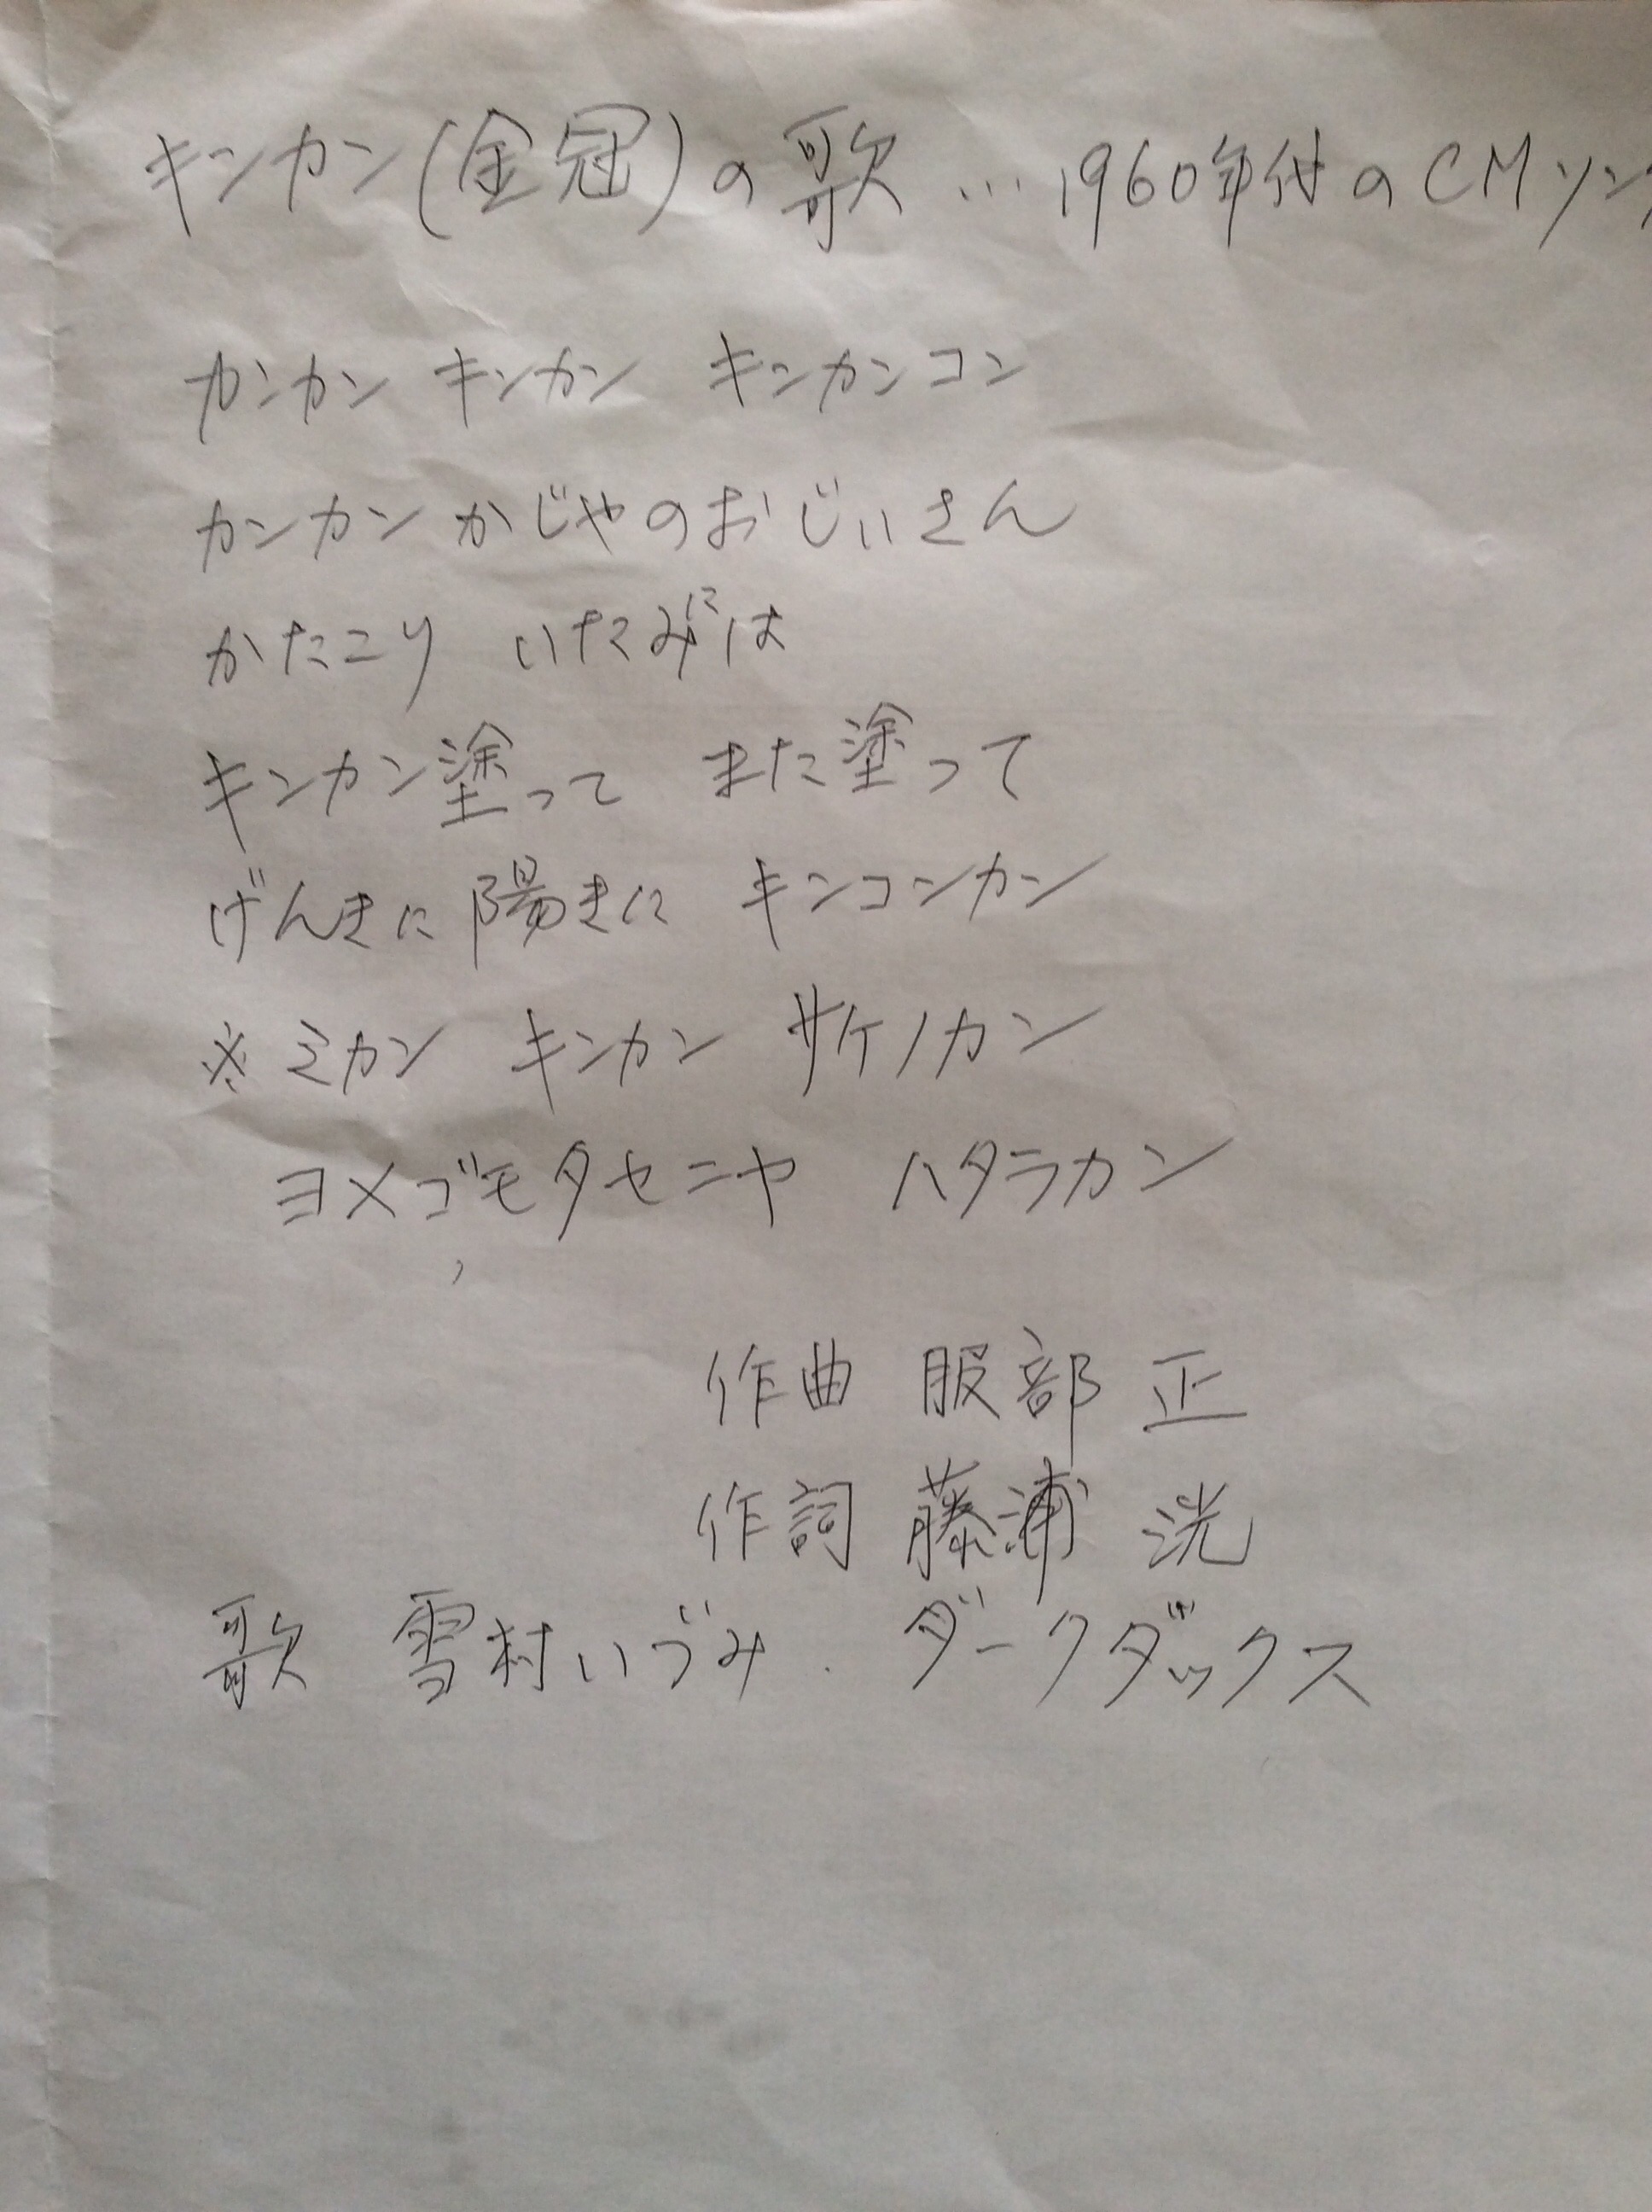 キンカン(金冠)の歌 … 1960年代のCMソング
カンカン キンカン キンカンコン
カンカンかじやのおじいさん
かたこり いたみには
キンカン塗って また塗って
げんきに陽きに キンコンカン
※ミカン キンカン サケノカン
ヨメゴモタセニヤ ハタラカン
作曲 服部 正
作詞 藤浦 洸
歌 雪村いづみ . ダークダックス